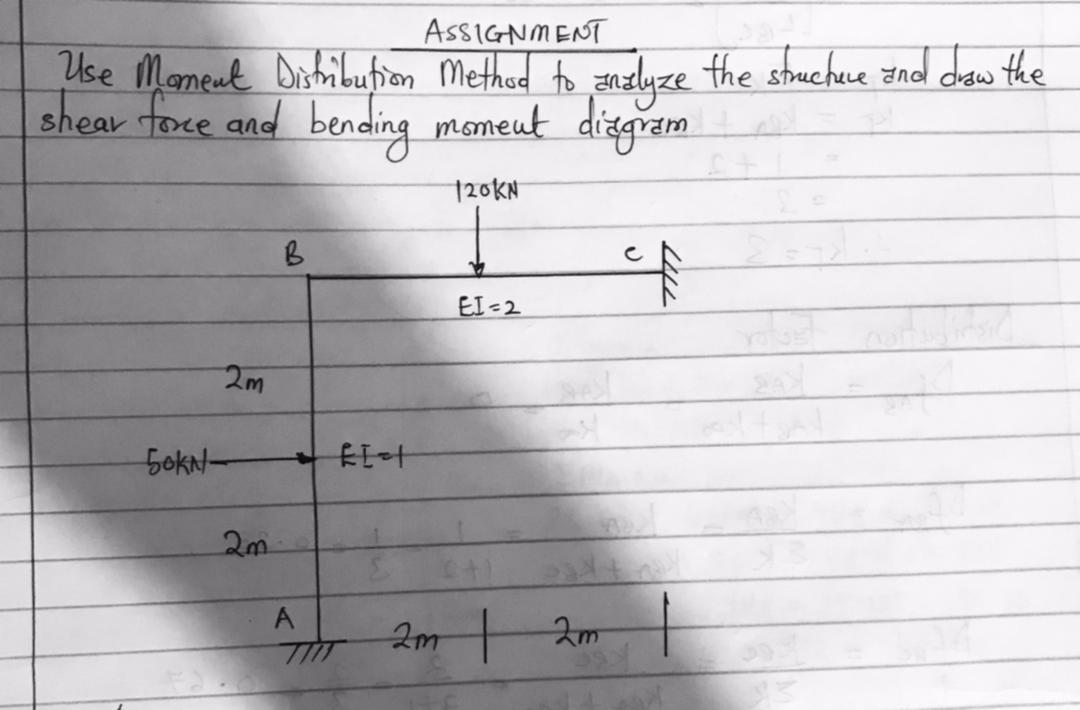 ASSIGNMENT
Use Moment Distribution Method to analyze the structure and draw the
shear force and bending moment diagram
120KN
B
C
EI=2
2m
50KN
EI=1
2m
A
2m
2m